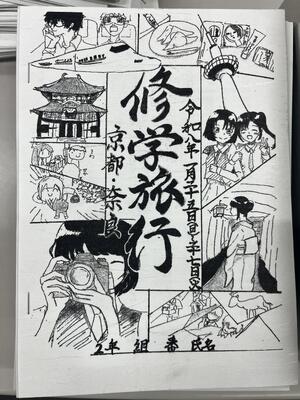 修学旅行
京都・奈良
令和八年一月二十五日(日)~二十七日(火)
2年 組 番 氏名